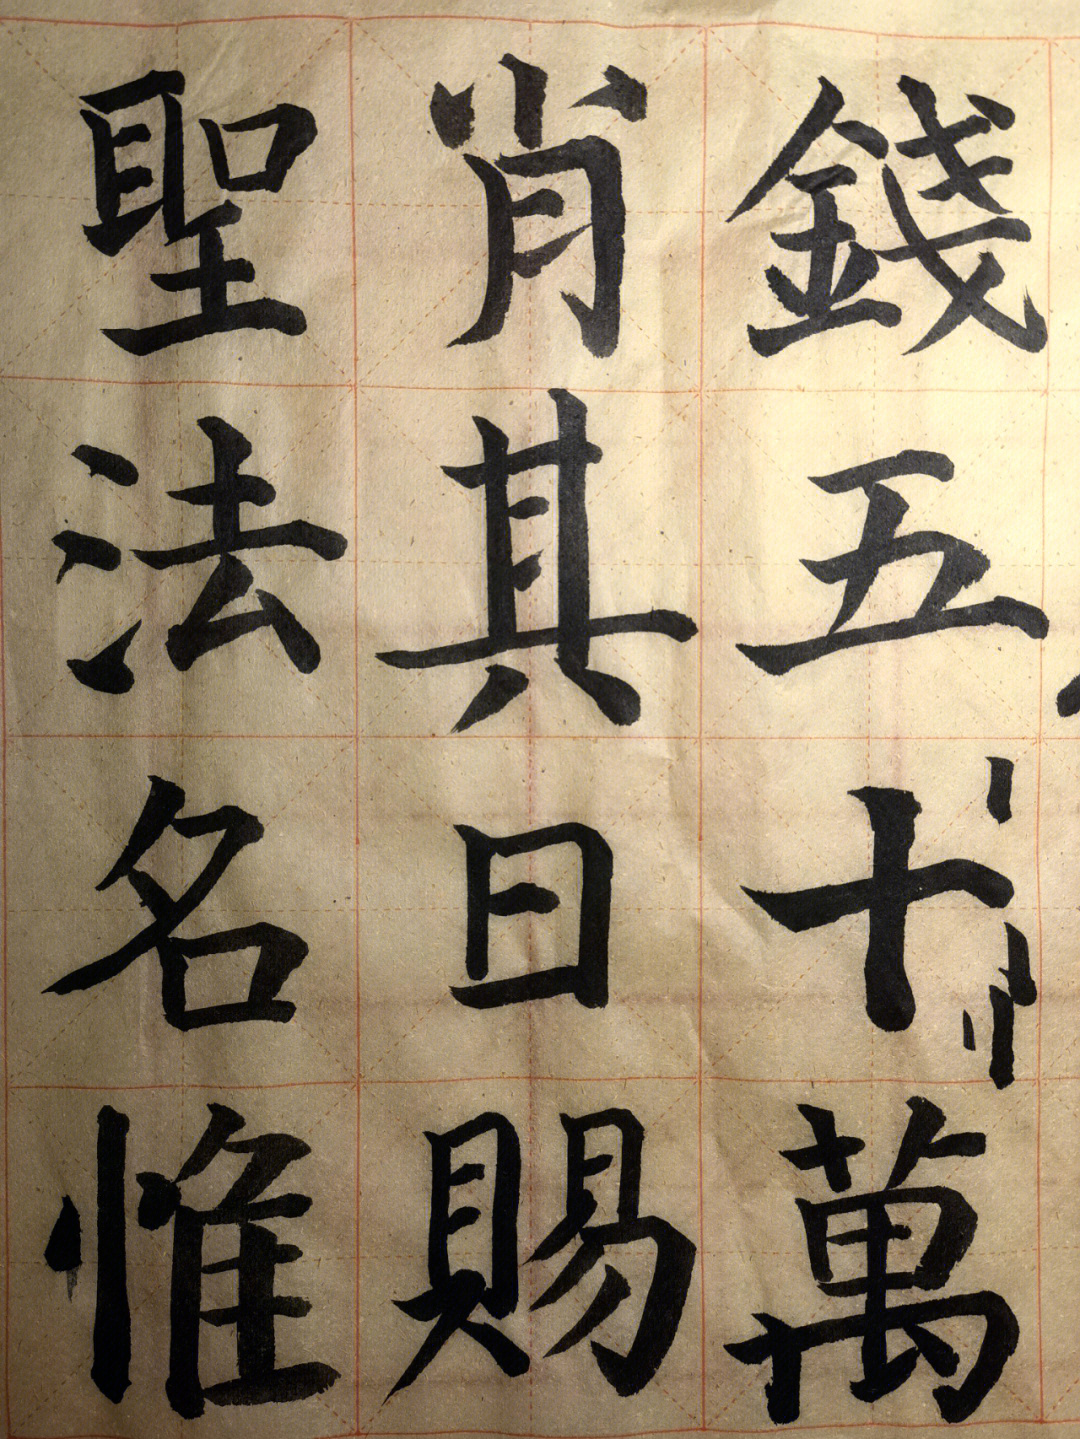 聖法名惟
肖其日賜
錢五十萬